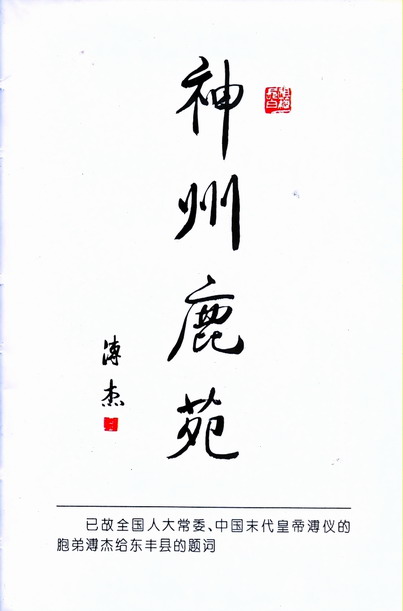 神州鹿苑
溥杰
已故全国人大常委、中国末代皇帝溥仪的
胞弟溥杰给东丰县的题词